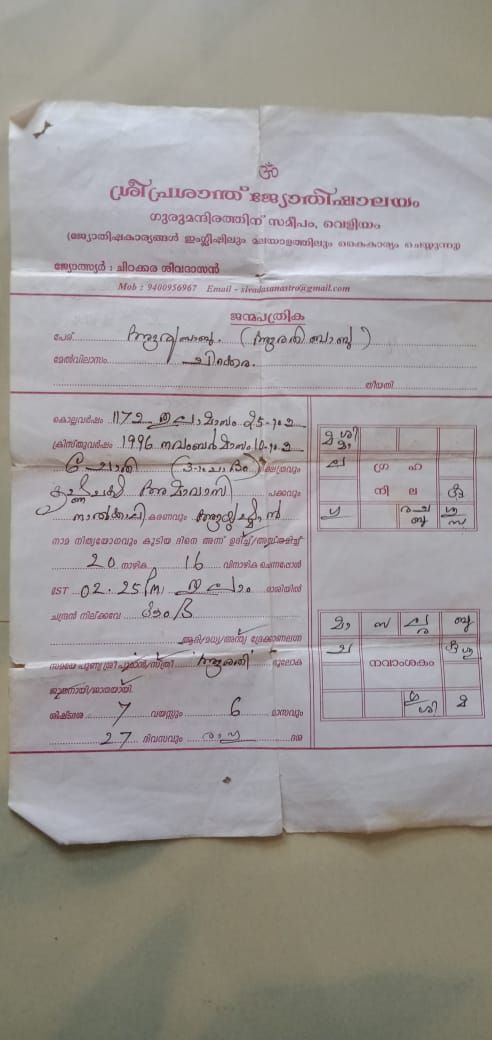 ॐ
ശ്രീപ്രശാന്ത് ജ്യോതിഷാലയം
ഗുരുമന്ദിരത്തിന് സമീപം, വെളിയം
(ജ്യോതിഷകാര്യങ്ങൾ ഇംഗ്ലീഷിലും മലയാളത്തിലും കൈകാര്യം ചെയ്യുന്നു)
ജ്യോത്സ്യർ : ചിറക്കര ശിവദാസൻ
Mob : 9400956967 Email - sivadasanastro@gmail.com
ജന്മപത്രിക
പേര് (ആരതി ബാബു)
മേൽവിലാസം ചിറക്കര.
തീയതി
കൊല്ലവർഷം 1172 തുലാം മാസം 25-ാം
ക്രിസ്തുവർഷം 1996 നവംബർ മാസം 10-ാം
ചോതി (3-ാംപാദം) നക്ഷത്രവും
അമാവാസി പക്കവും
നാൽക്കാലി കരണവും ആയുഷ്മാൻ
നാമ നിത്യയോഗവും കൂടിയ ദിനെ അന്ന് ഉദിച്ച്/അസ്തമിച്ച്
20 നാഴിക 16 വിനാഴിക ചെന്നപ്പോൾ
IST 02.25 PM രാശിയിൽ
ചന്ദ്രൻ നില്ക്കവേ കുംഭ
ആദി/മധ്യ/അന്ത്യ ദ്രേക്കാണലഗ്ന
സമയെ പുണ്യശ്രീ പുമാൻ/സ്ത്രീ 'ആരതി' ഭൂലോക
ജാതനായി/ജാതയായി.
ശിഷ്ടദശ 7 വയസ്സും 6 മാസവും
27 ദിവസവും രാഹു ദശ
മാ ശി
ല ഗ്ര ഹ
നി ല കു
ഗു ര ച ബു ശു സ
മാ സ ബു
ച നവാംശകം കു ഗു
ശി മ